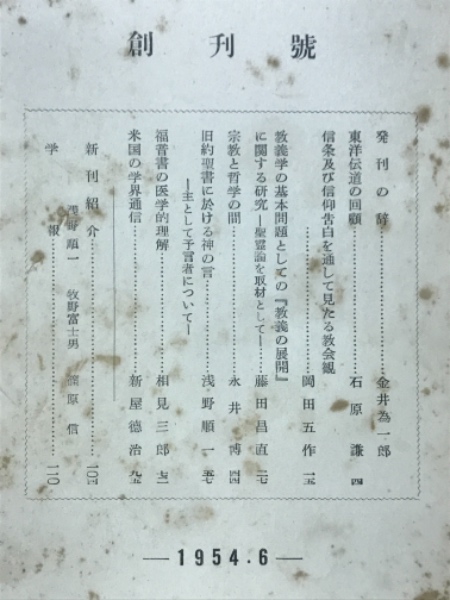 創刊號
発刊の辞……金井為一郎
東洋伝道の回顧……石原謙 四
信条及び信仰告白を通して見たる教会観
……岡田五作 一五
教義学の基本問題としての『教義の展開』
に関する研究―聖霊論を取材として―……藤田昌直 二七
宗教と哲学の間……永井博 四四
旧約聖書に於ける神の言……浅野順一 五七
―主として予言者について―
福音書の医学的理解……相見三郎 七二
米国の学界通信……新屋徳治 九五
新刊紹介……一〇四
浅野順一 牧野富士男 篠原信
学報……一一〇
―1954.6―